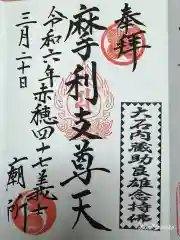 奉拝
大石内蔵助良雄念持佛
摩利支尊天
令和六年赤穂四十七義士
廟所
三月二十日